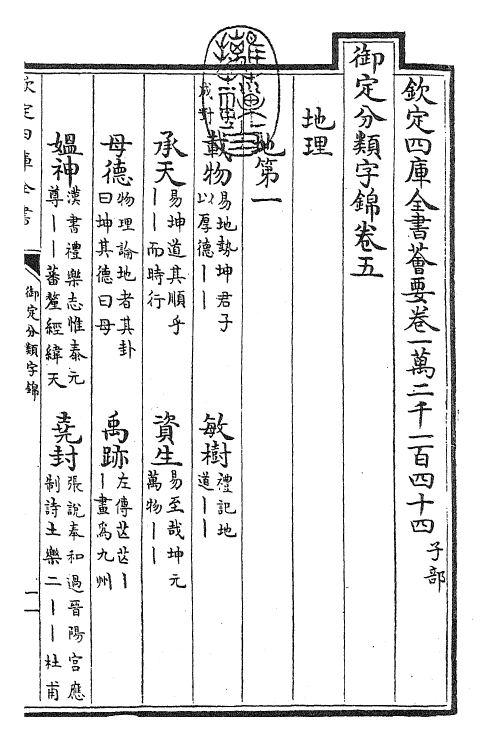 欽定四庫全書薈要卷一萬二千一百四十四 子部
御定分類字錦卷五
地理
地第一
成對
載物 易地勢坤君子以厚德丨丨
敏樹 禮記地道丨丨
承天 易坤道其順乎丨丨而時行
資生 易至哉坤元萬物丨丨
母德 物理論地者其卦曰坤其德曰母
禹跡 左傳茫茫丨丨畫為九州
媪神 漢書禮樂志惟泰元尊丨丨蕃釐經緯天
堯封 張說奉和過晉陽宮應制詩土樂二丨丨杜甫
欽定四庫全書
御定分類字錦
一